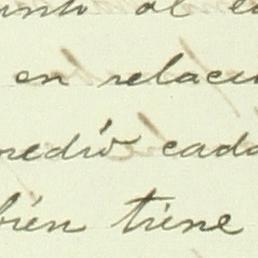 al
en relaci
medio cada
bién tiene